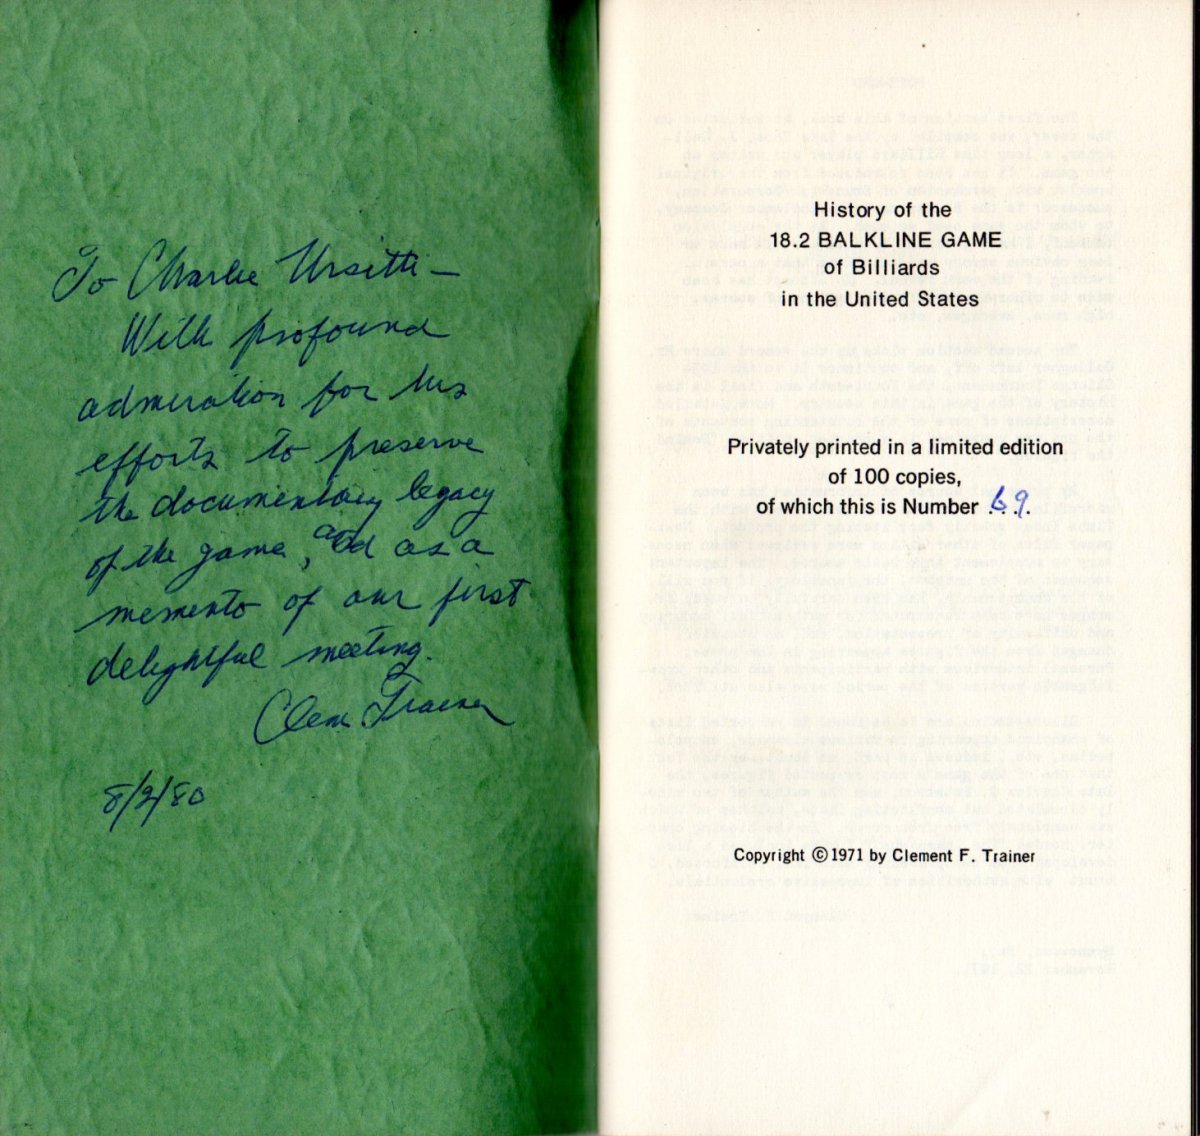 To Charlie Ursitti —
With profound
admiration for his
efforts to preserve
the documentary legacy
of the game, and as a
memento of our first
delightful meeting.
Clem Trainer
8/2/80
History of the
18.2 BALKLINE GAME
of Billiards
in the United States
Privately printed in a limited edition
of 100 copies,
of which this is Number 69.
Copyright © 1971 by Clement F. Trainer